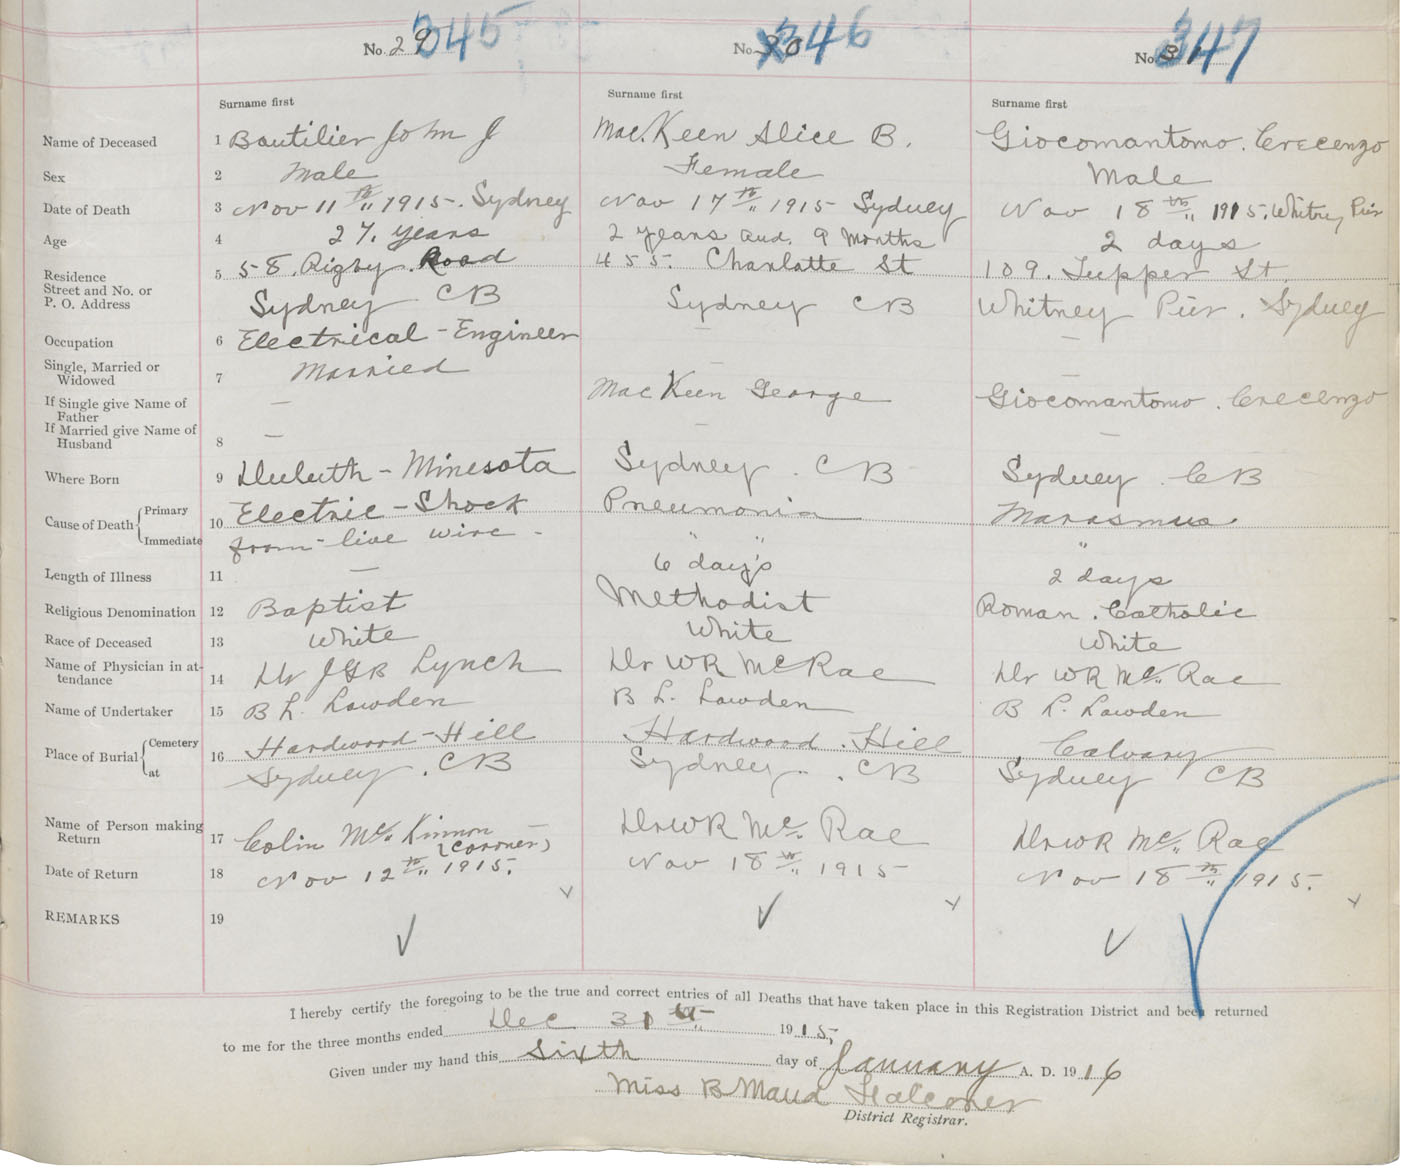 No. 29 345 No. 30 346 No. 31 347
Surname first Surname first Surname first
Name of Deceased 1 Boutilier John J Mac.Keen Alice B. Giocomantomo. Crecenzo
Sex 2 Male Female Male
Date of Death 3 Nov 11th 1915. Sydney Nov 17th 1915 Sydney Nov 18th 1915. Whitney Pier
Age 4 27. years 2 years and. 9 Months 2 days
Residence Street and No. or P. O. Address 5 58. Rigby. Road 455. Charlatte St 109. Tupper St.
Sydney CB Sydney CB Whitney Pier. Sydney
Occupation 6 Electrical - Engineer — —
Single, Married or Widowed 7 Married — —
If Single give Name of Father — Mac Keen George Giocomantomo. Crecenzo
If Married give Name of Husband 8 — — —
Where Born 9 Duluth - Minesota Sydney. CB Sydney. CB
Cause of Death { Primary 10 Electric - Shock Pneumonia Marasmus
Immediate from live wire - " " "
Length of Illness 11 — 6 day's 2 days
Religious Denomination 12 Baptist Methodist Roman. Catholic
Race of Deceased 13 White White White
Name of Physician in attendance 14 Dr JGB Lynch Dr WR McRae Dr WR Mc Rae
Name of Undertaker 15 B L. Lowden B L. Lowden B L. Lowden
Place of Burial { Cemetery 16 Hardwood - Hill Hardwood. Hill Calvary
at Sydney. CB Sydney. CB Sydney CB
Name of Person making Return 17 Colin Mc Kinnon (Coroner) Dr WR Mc Rae Dr WR Mc Rae
Date of Return 18 Nov 12th 1915. Nov 18th 1915 Nov 18th 1915.
REMARKS 19
I hereby certify the foregoing to be the true and correct entries of all Deaths that have taken place in this Registration District and been returned
to me for the three months ended Dec 31st 1915,
Given under my hand this Sixth day of January A. D. 1916
Miss B Maud Falconer
District Registrar.